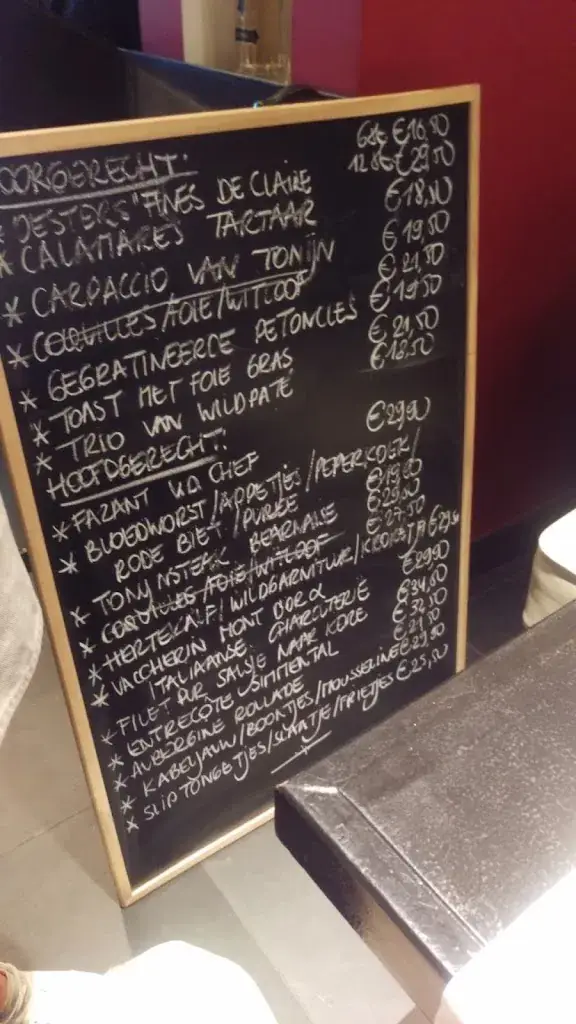 OORGERECHT: 6st €16,50
* OESTERS "FINES DE CLAIRE 12st €29,50
* CALAMARES TARTAAR €18,50
* CARPACCIO VAN TONIJN €19,50
* COQUILLES/FOIE/WITLOOF €21,50
* GEGRATINEERDE PETONCLES €19,50
* TOAST MET FOIE GRAS €21,50
* TRIO VAN WILDPATÉ €18,50
HOOFDGERECHT:
* FAZANT V.D CHEF €29,90
* BLOEDWORST/APPELTJES/PEPERKOEK/
RODE BIET/PUREE
* TONIJNSTEAK BEARNAISE
* COQUILLES/FOIE/WITLOOF €27,50
* HERTEKALF/WILDGARNITUUR/KROKETJE
* VACHERIN MONT D'OR &
ITALIAANSE CHARCUTERIE
* FILET PUR SAUSJE NAAR KORE
* ENTRECOTE SIMMENTAL
* AUBERGINE ROLLADE
* KABELJAUW/BOONTJES/MOUSSELINE €29,50
* SLIPTONGETJES/SLAATJE/FRIETJES €25,50